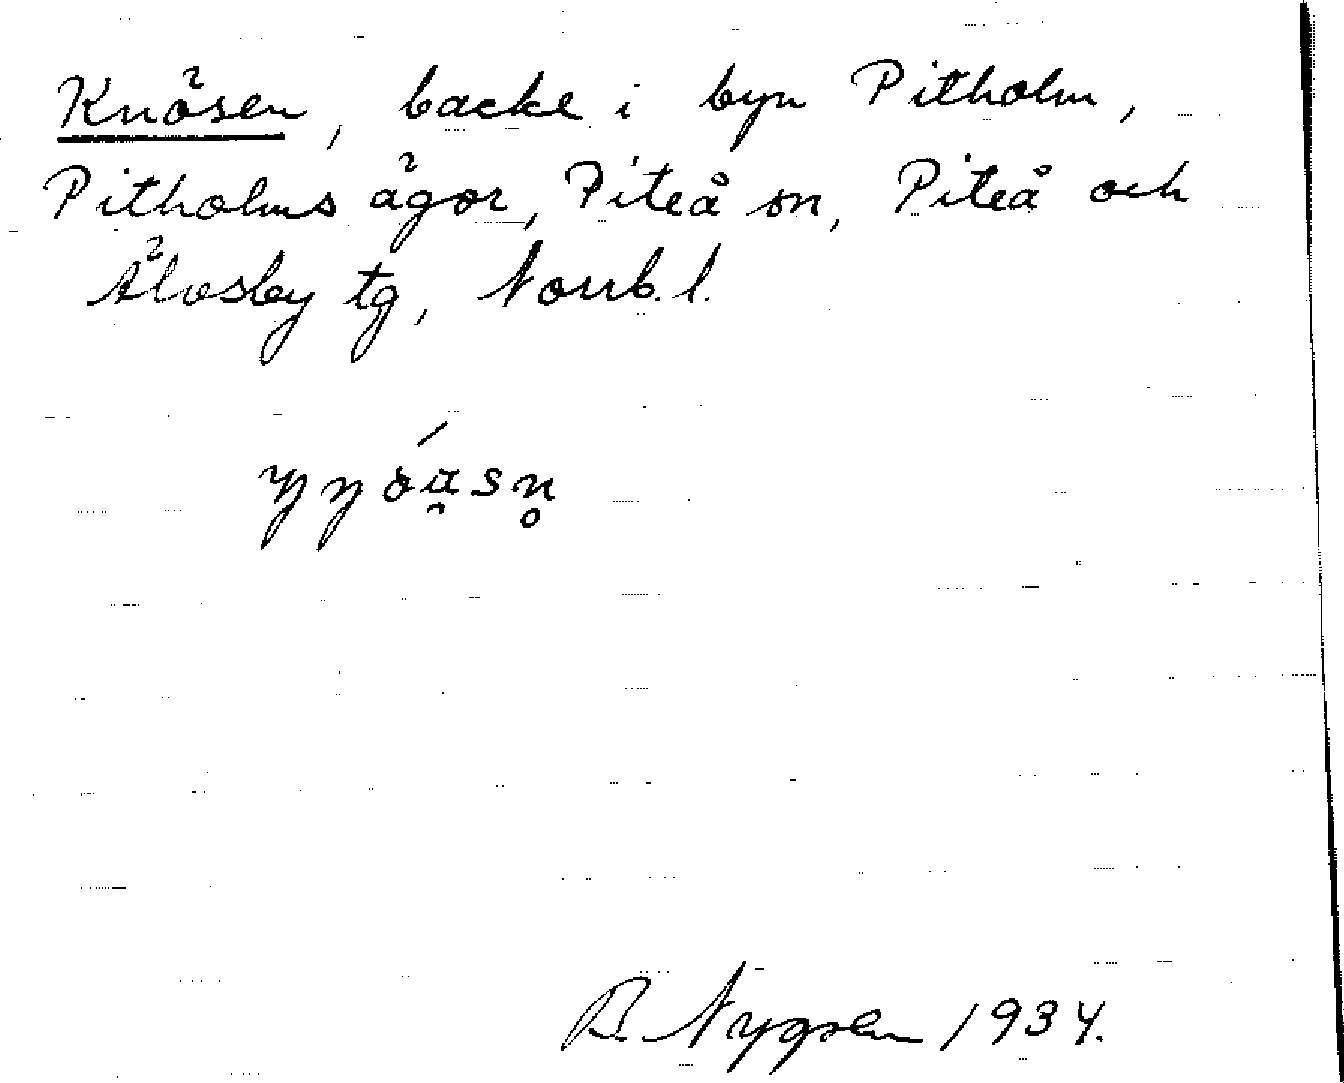 Knösen, backe i byn Pitholm,
Pitholms ägor, Piteå sn, Piteå och
Älvsby tg, Norrb. l.
1934.